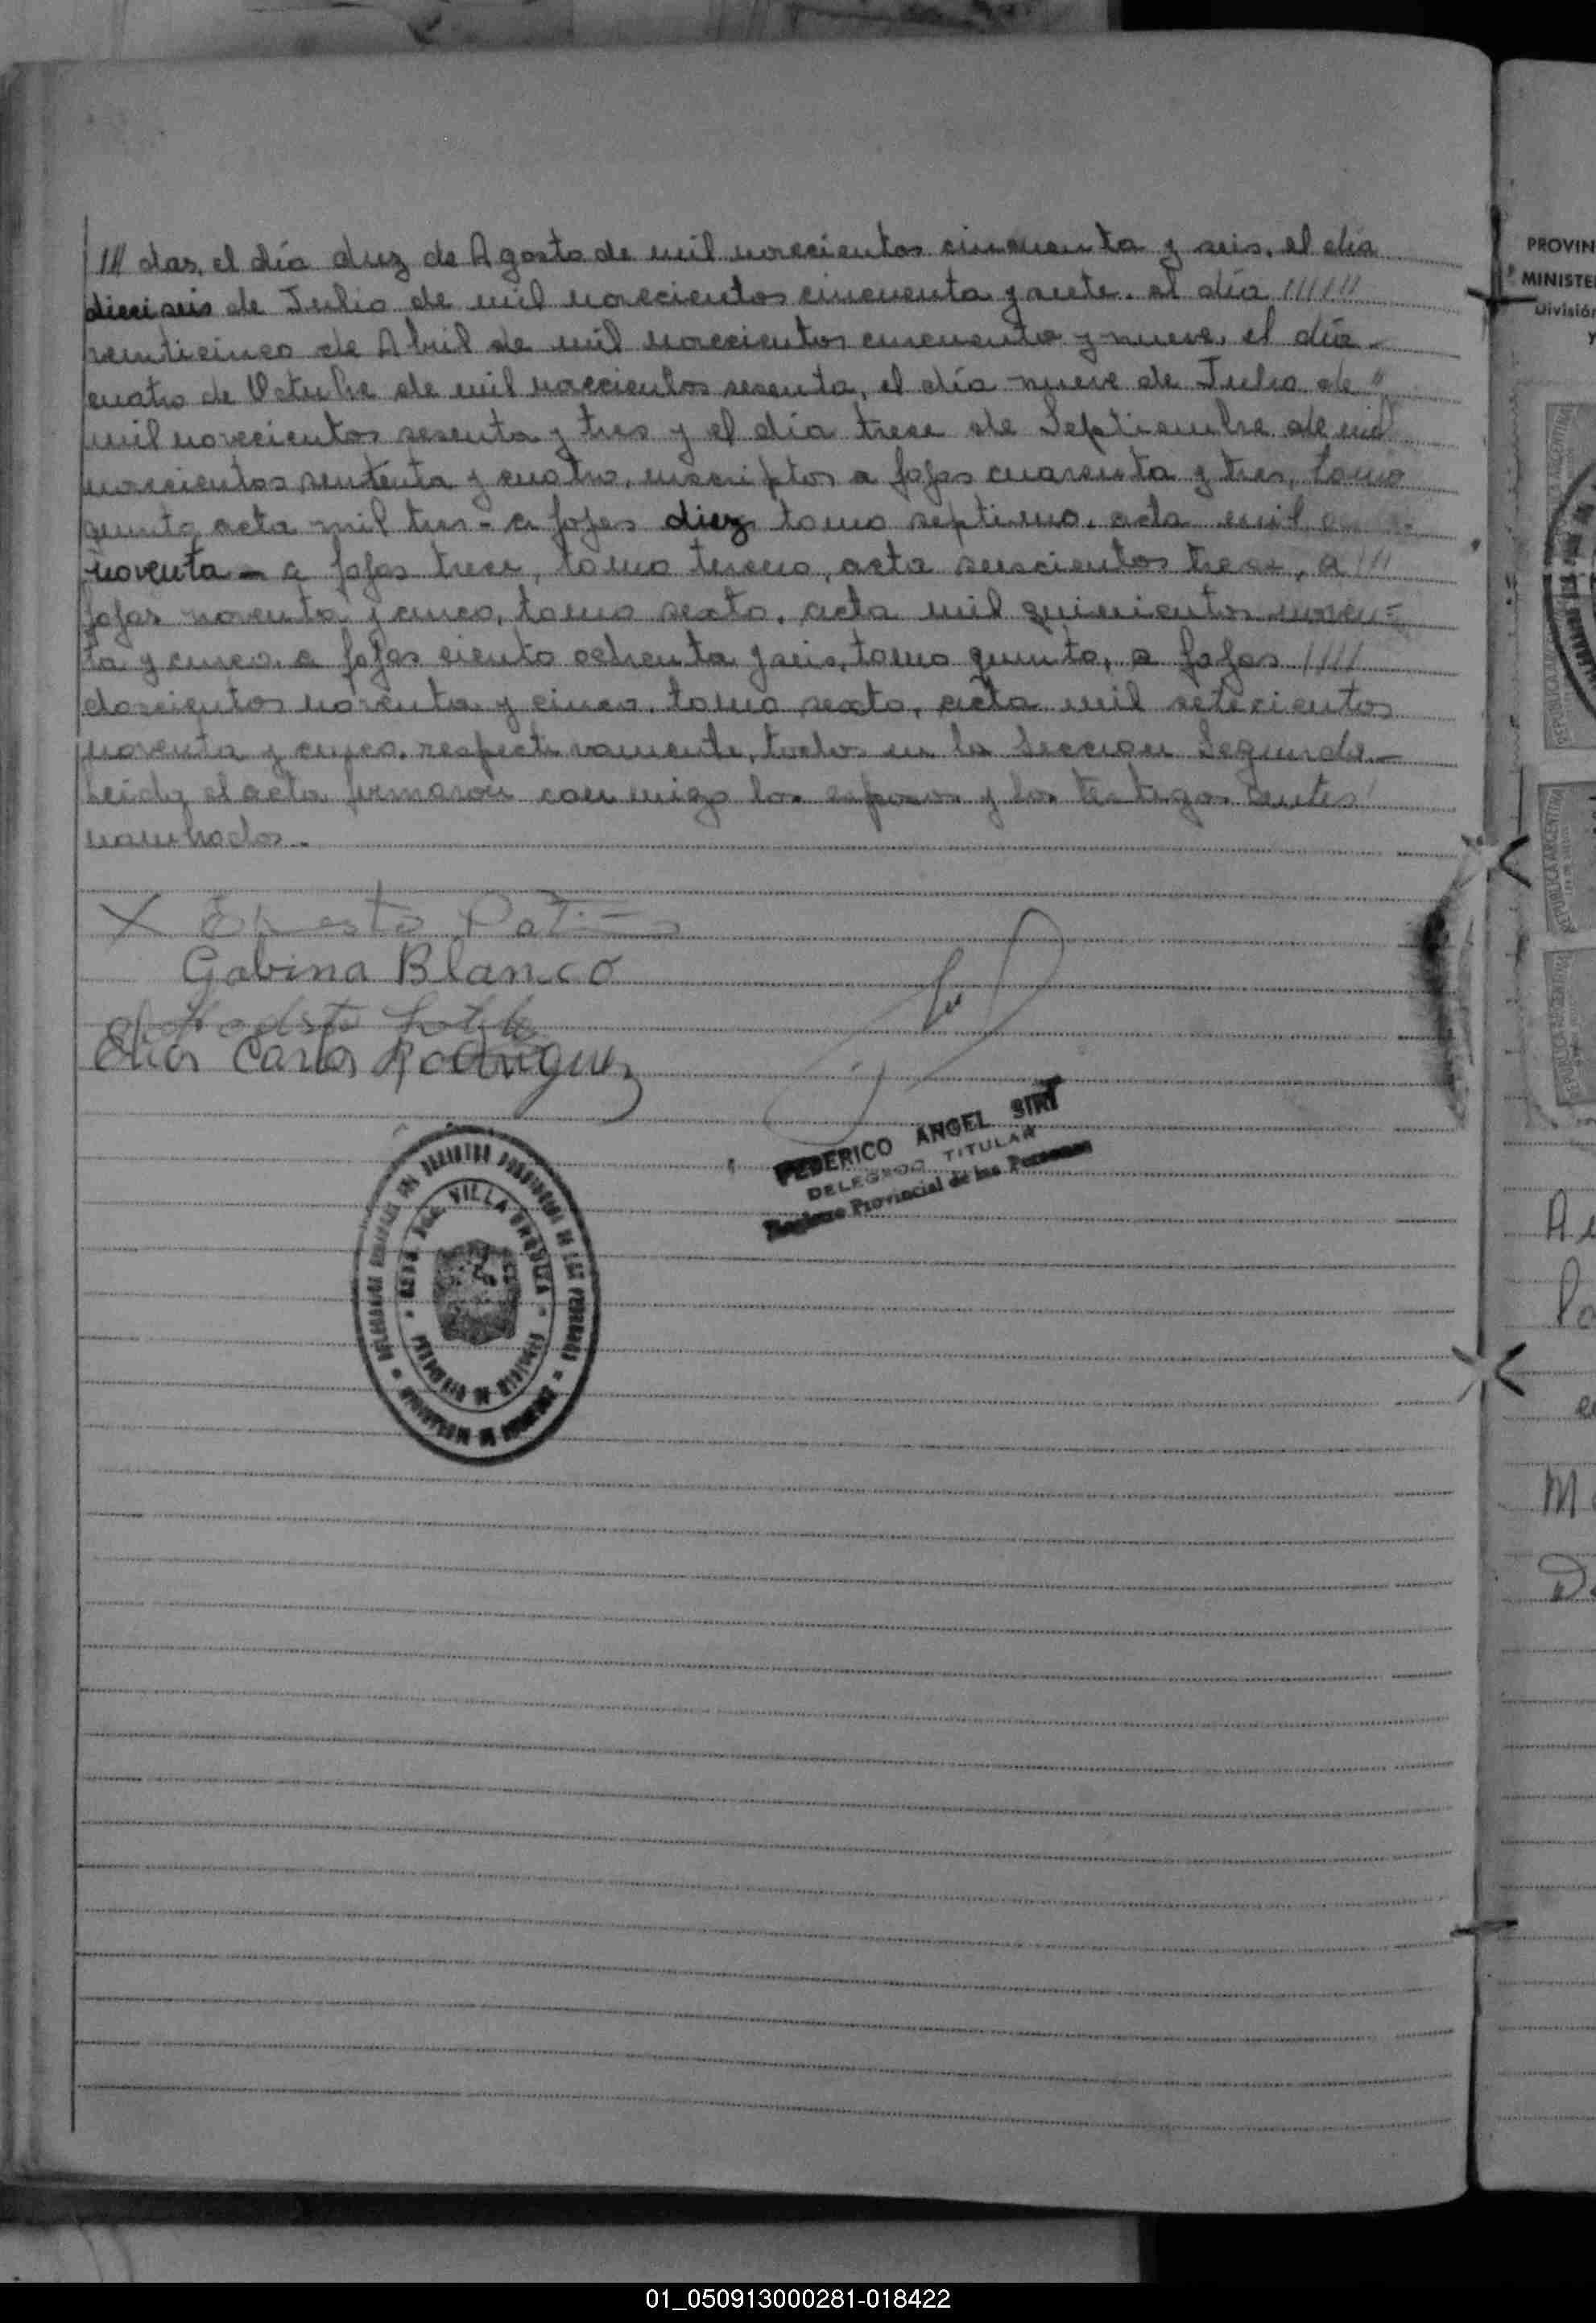 /// das, el día diez de Agosto de mil novecientos cincuenta y seis, el día
dieciseis de Julio de mil novecientos cincuenta y siete, el día //////
veinticinco de Abril de mil novecientos cincuenta y nueve, el día -
cuatro de Octubre de mil novecientos sesenta, el día nueve de Julio de "
mil novecientos sesenta y tres y el día trece de Septiembre de mil
novecientos y cuatro, inscriptos a fojas cuarenta y tres, tomo
quinto acta mil tres - a fojas diez tomo septimo, acta mil
noventa - a fojas trece, tomo tercero, acta seiscientos trece, a ///
fojas noventa y cinco, tomo sexto, acta mil quinientos noven=
ta y cinco, a fojas ciento ochenta y seis, tomo quinto, a fojas ////
doscientos noventa y cinco, tomo sexto, acta mil setecientos
noventa y cinco, respectivamente, todos en la Seccion Segunda.-
Leida el acta firmaron conmigo los esposos y los testigos antes
nombrados.-
X Ernesto Patiño
Gabina Blanco
Elios Carlos Rodriguez
FEDERICO ANGEL SIRI
DELEGADO TITULAR
Registro Provincial de las Personas
VILLA URQUIZA
PROVIN
MINISTE
División
y
REPUBLICA ARGENTINA
REPUBLICA ARGENTINA
REPUBLICA ARGENTINA
01_050913000281-018422